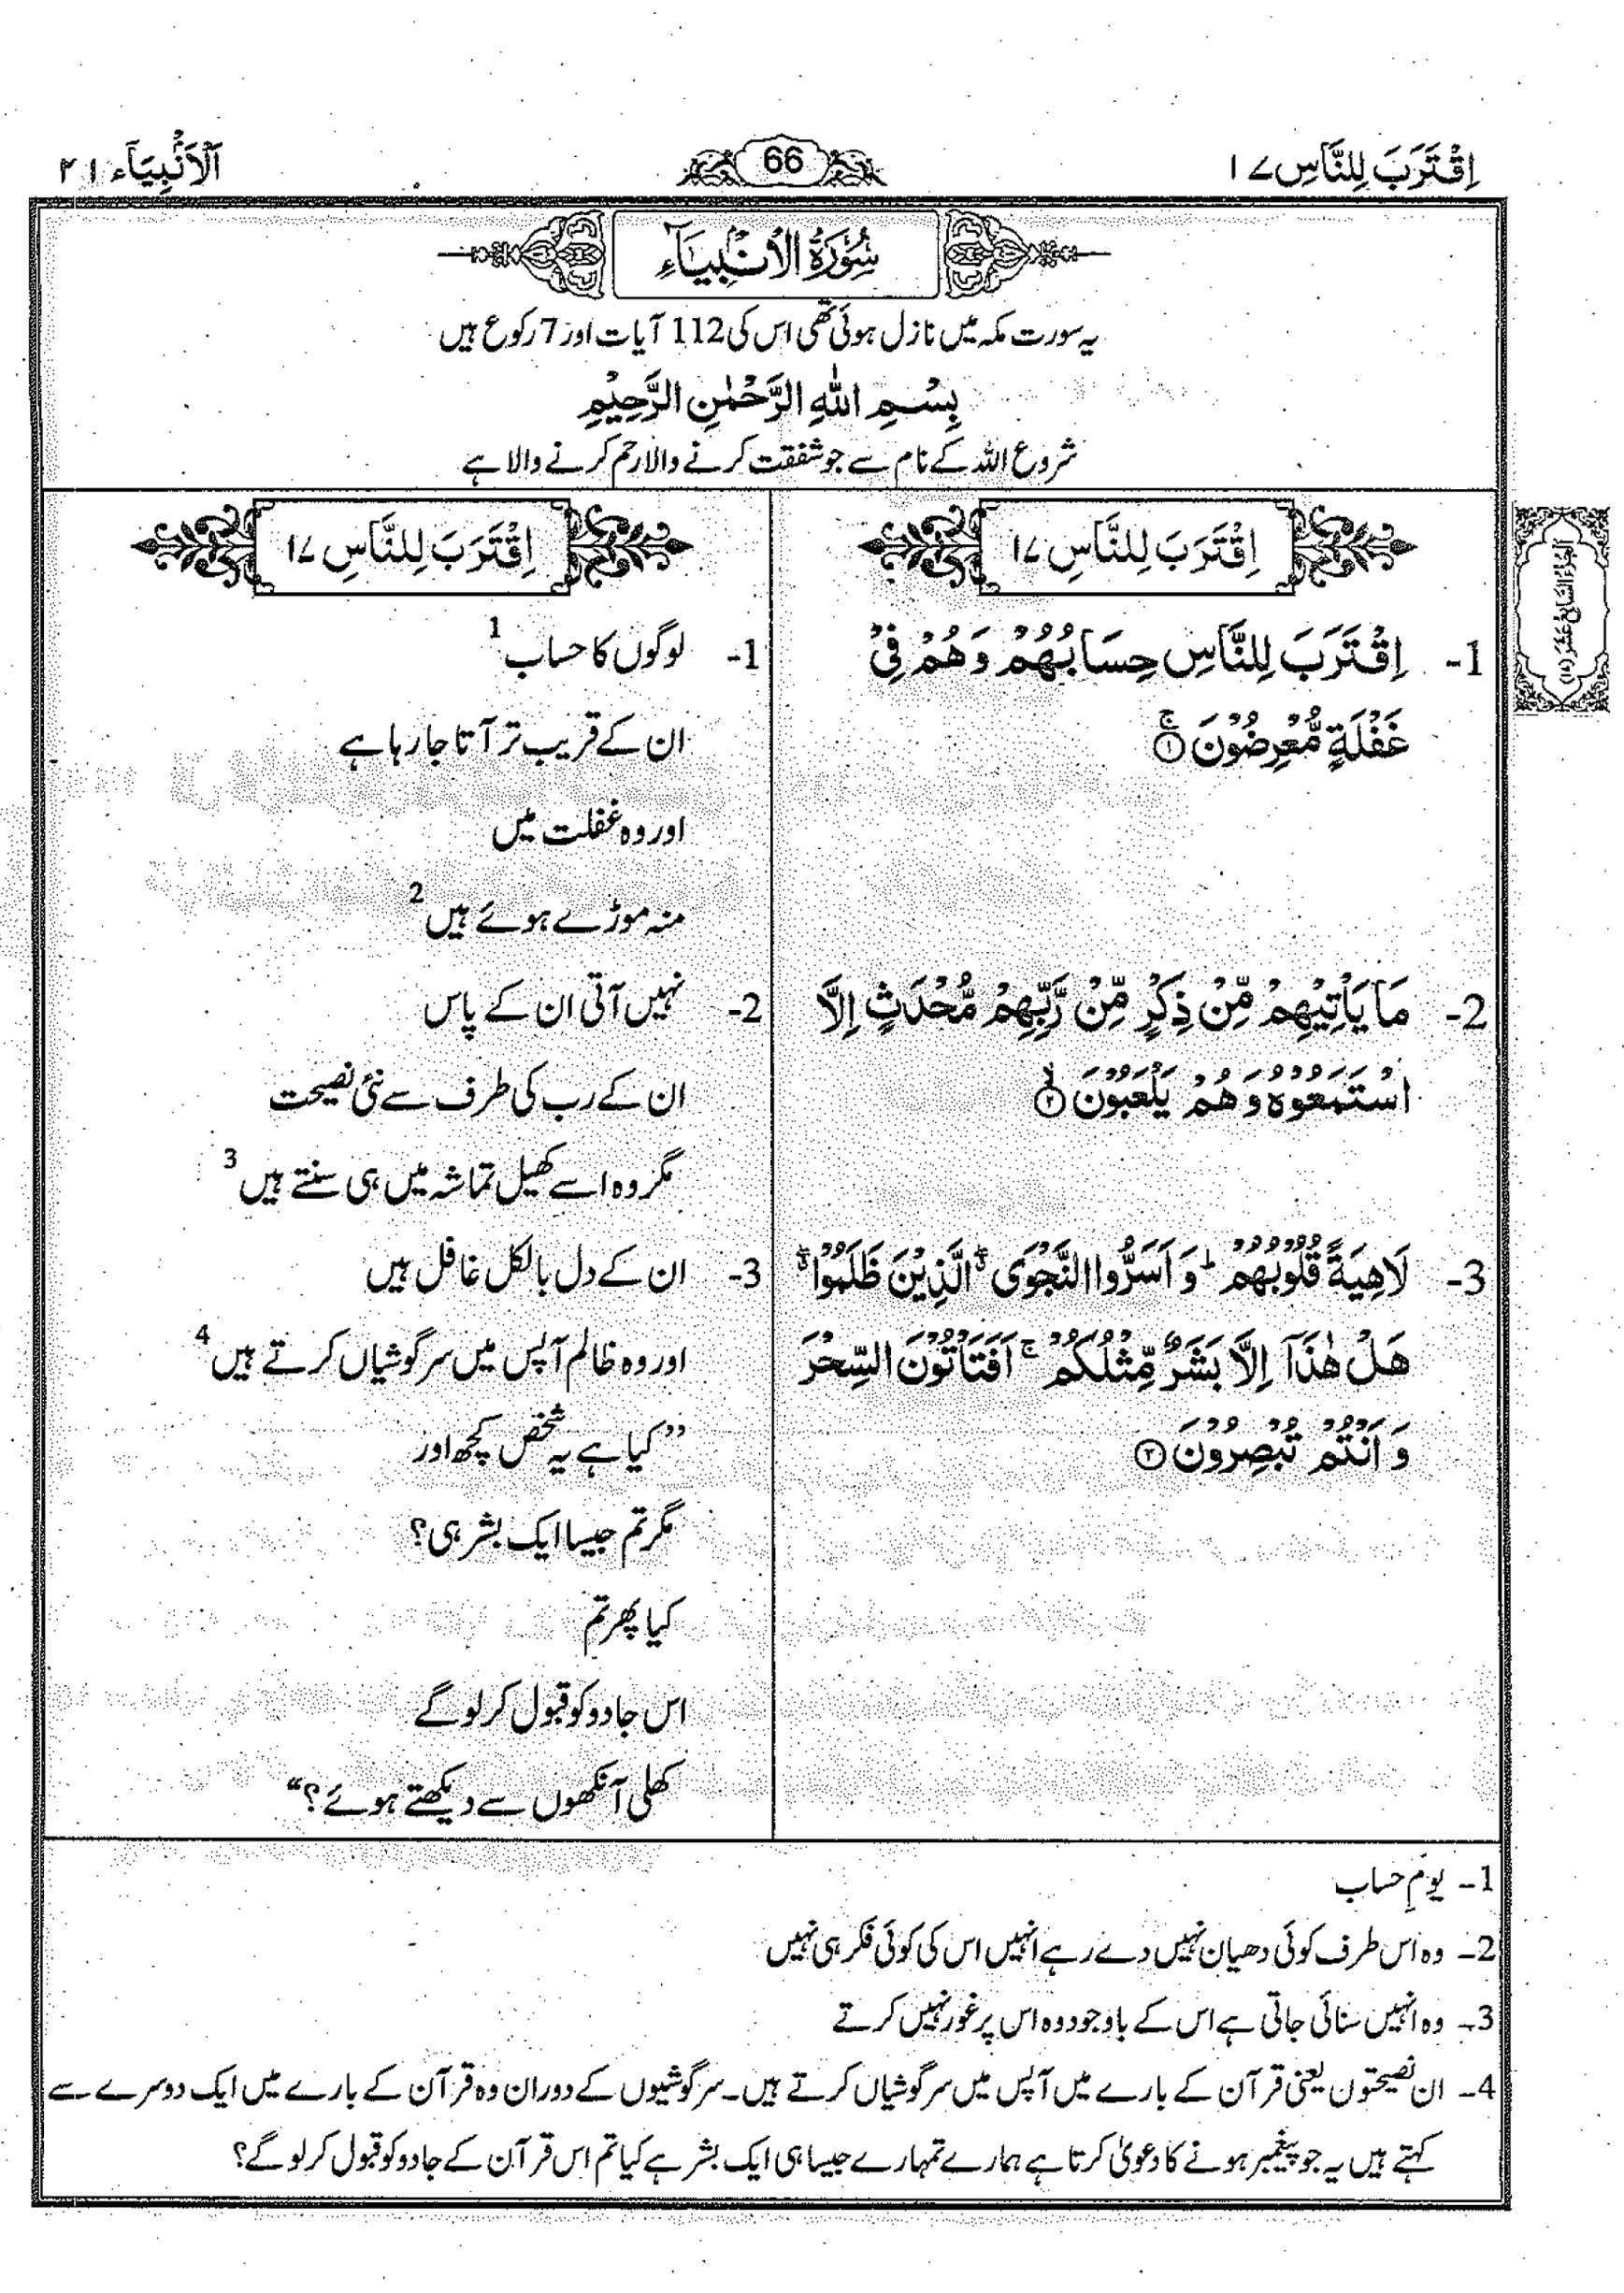 اِقْتَرَبَ لِلنَّاسِ ۱۷
66
اَلْاَنْۢبِيَآء ۲۱
سُوْرَةُ الْاَنْۢبِيَآءِ
یہ سورت مکہ میں نازل ہوئی تھی اس کی 112 آیات اور 7 رکوع ہیں
بِسْمِ اللّٰهِ الرَّحْمٰنِ الرَّحِيْمِ
شروع اللہ کے نام سے جو شفقت کرنے والا رحم کرنے والا ہے
اِقْتَرَبَ لِلنَّاسِ ۱۷
1- اِقْتَرَبَ لِلنَّاسِ حِسَابُهُمْ وَهُمْ فِيْ
غَفْلَةٍ مُّعْرِضُوْنَ ۚ ۝۱
2- مَا يَاْتِيْهِمْ مِّنْ ذِكْرٍ مِّنْ رَّبِّهِمْ مُّحْدَثٍ اِلَّا
اسْتَمَعُوْهُ وَهُمْ يَلْعَبُوْنَ ۙ ۝۲
3- لَاهِيَةً قُلُوْبُهُمْ ؕ وَ اَسَرُّوا النَّجْوَى ۖۗ الَّذِيْنَ ظَلَمُوْا ۖۗ
هَلْ هٰذَاۤ اِلَّا بَشَرٌ مِّثْلُكُمْ ۚ اَفَتَاْتُوْنَ السِّحْرَ
وَ اَنْتُمْ تُبْصِرُوْنَ ۝۳
اِقْتَرَبَ لِلنَّاسِ ۱۷
1- لوگوں کا حساب 1
ان کے قریب تر آتا جا رہا ہے
اور وہ غفلت میں
منہ موڑے ہوئے ہیں 2
2- نہیں آتی ان کے پاس
ان کے رب کی طرف سے نئی نصیحت
مگر وہ اسے کھیل تماشہ میں ہی سنتے ہیں 3
3- ان کے دل بالکل غافل ہیں
اور وہ ظالم آپس میں سرگوشیاں کرتے ہیں 4
”کیا ہے یہ شخص کچھ اور
مگر تم جیسا ایک بشر ہی؟
کیا پھر تم
اس جادو کو قبول کر لو گے
کھلی آنکھوں سے دیکھتے ہوئے؟“
1- یومِ حساب
2- وہ اس طرف کوئی دھیان نہیں دے رہے انہیں اس کی کوئی فکر ہی نہیں
3- وہ انہیں سنائی جاتی ہے اس کے باوجود وہ اس پر غور نہیں کرتے
4- ان نصیحتوں یعنی قرآن کے بارے میں آپس میں سرگوشیاں کرتے ہیں۔ سرگوشیوں کے دوران وہ قرآن کے بارے میں ایک دوسرے سے
کہتے ہیں یہ جو پیغمبر ہونے کا دعویٰ کرتا ہے ہمارے تمہارے جیسا ہی ایک بشر ہے کیا تم اس قرآن کے جادو کو قبول کر لو گے؟